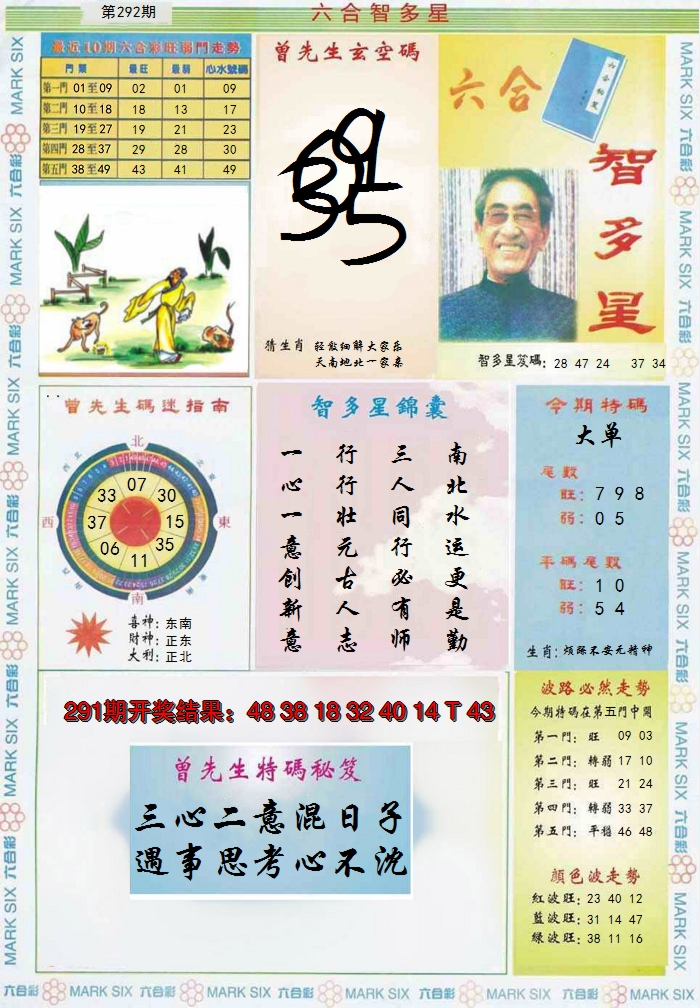 第292期
六合智多星
最近10期六合彩旺弱門走勢
門類 最旺 最弱 心水號碼
第一門 01至09 02 01 09
第二門 10至18 18 13 17
第三門 19至27 19 21 23
第四門 28至37 29 28 30
第五門 38至49 43 41 49
曾先生玄空碼
猜生肖 轻敲细解大家乐
天南地北一家亲
六合
智多星
智多星笈碼: 28 47 24 37 34
曾先生碼迷指南
北
西
東
南
07
33 30
37 15
06 35
11
喜神: 东南
财神: 正东
大利: 正北
智多星錦囊
南北水运更是勤
三人同行必有师
行行壮元古人志
一心一意创新意
今期特碼
大单
尾数
旺: 7 9 8
弱: 0 5
平碼尾数
旺: 1 0
弱: 5 4
生肖: 烦躁不安无精神
291期开奖结果：48 38 18 32 40 14 T 43
曾先生特碼秘笈
三心二意混日子
遇事思考心不沈
波路必然走勢
今期特碼在第五門中開
第一門: 旺 09 03
第二門: 轉弱 17 10
第三門: 旺 21 24
第四門: 轉弱 33 37
第五門: 平穩 46 48
顏色波走勢
紅波旺: 23 40 12
藍波旺: 31 14 47
綠波旺: 38 11 16
六合彩 MARK SIX 六合彩 MARK SIX 六合彩 MARK SIX 六合彩 MARK SIX 六合彩